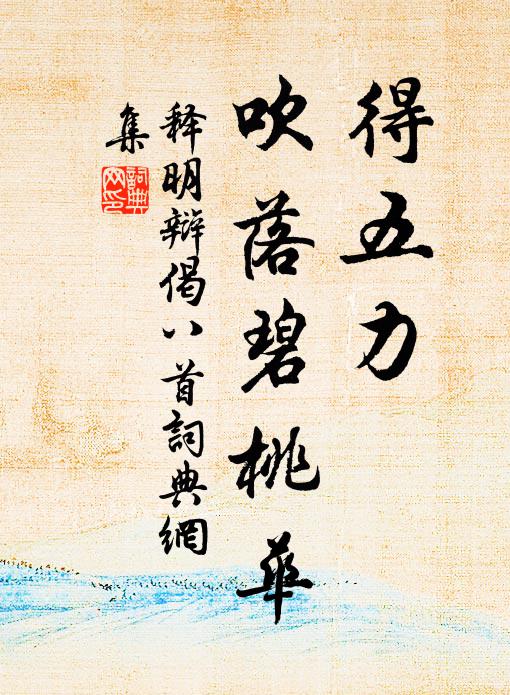 得五力
吹落碧桃華
释明辩偈八首詞典網
集
詞典網印